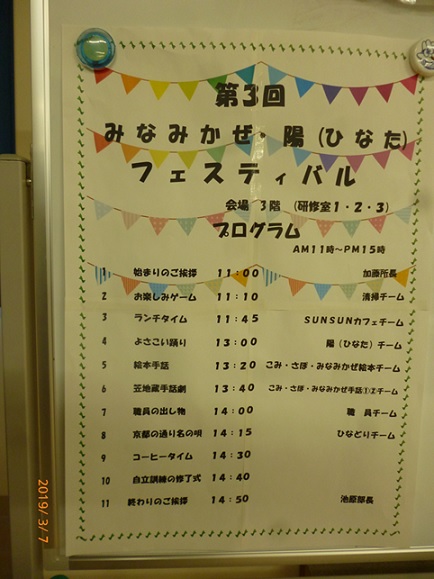 第3回
みなみかぜ・陽(ひなた)
フェスティバル
会場 3階 (研修室1・2・3)
プログラム
AM11時~PM15時
1 始まりのご挨拶 11:00 加藤所長
2 お楽しみゲーム 11:10 清掃チーム
3 ランチタイム 11:45 SUNSUNカフェチーム
4 よさこい踊り 13:00 陽(ひなた)チーム
5 絵本手話 13:20 こみ・さぽ・みなみかぜ絵本チーム
6 笠地蔵手話劇 13:40 こみ・さぽ・みなみかぜ手話①②チーム
7 職員の出し物 14:00 職 員チーム
8 京都の通り名の唄 14:15 ひなどりチーム
9 コーヒータイム 14:30
10 自立訓練の修了式 14:40
11 終わりのご挨拶 14:50 池原部長
2019/3/7